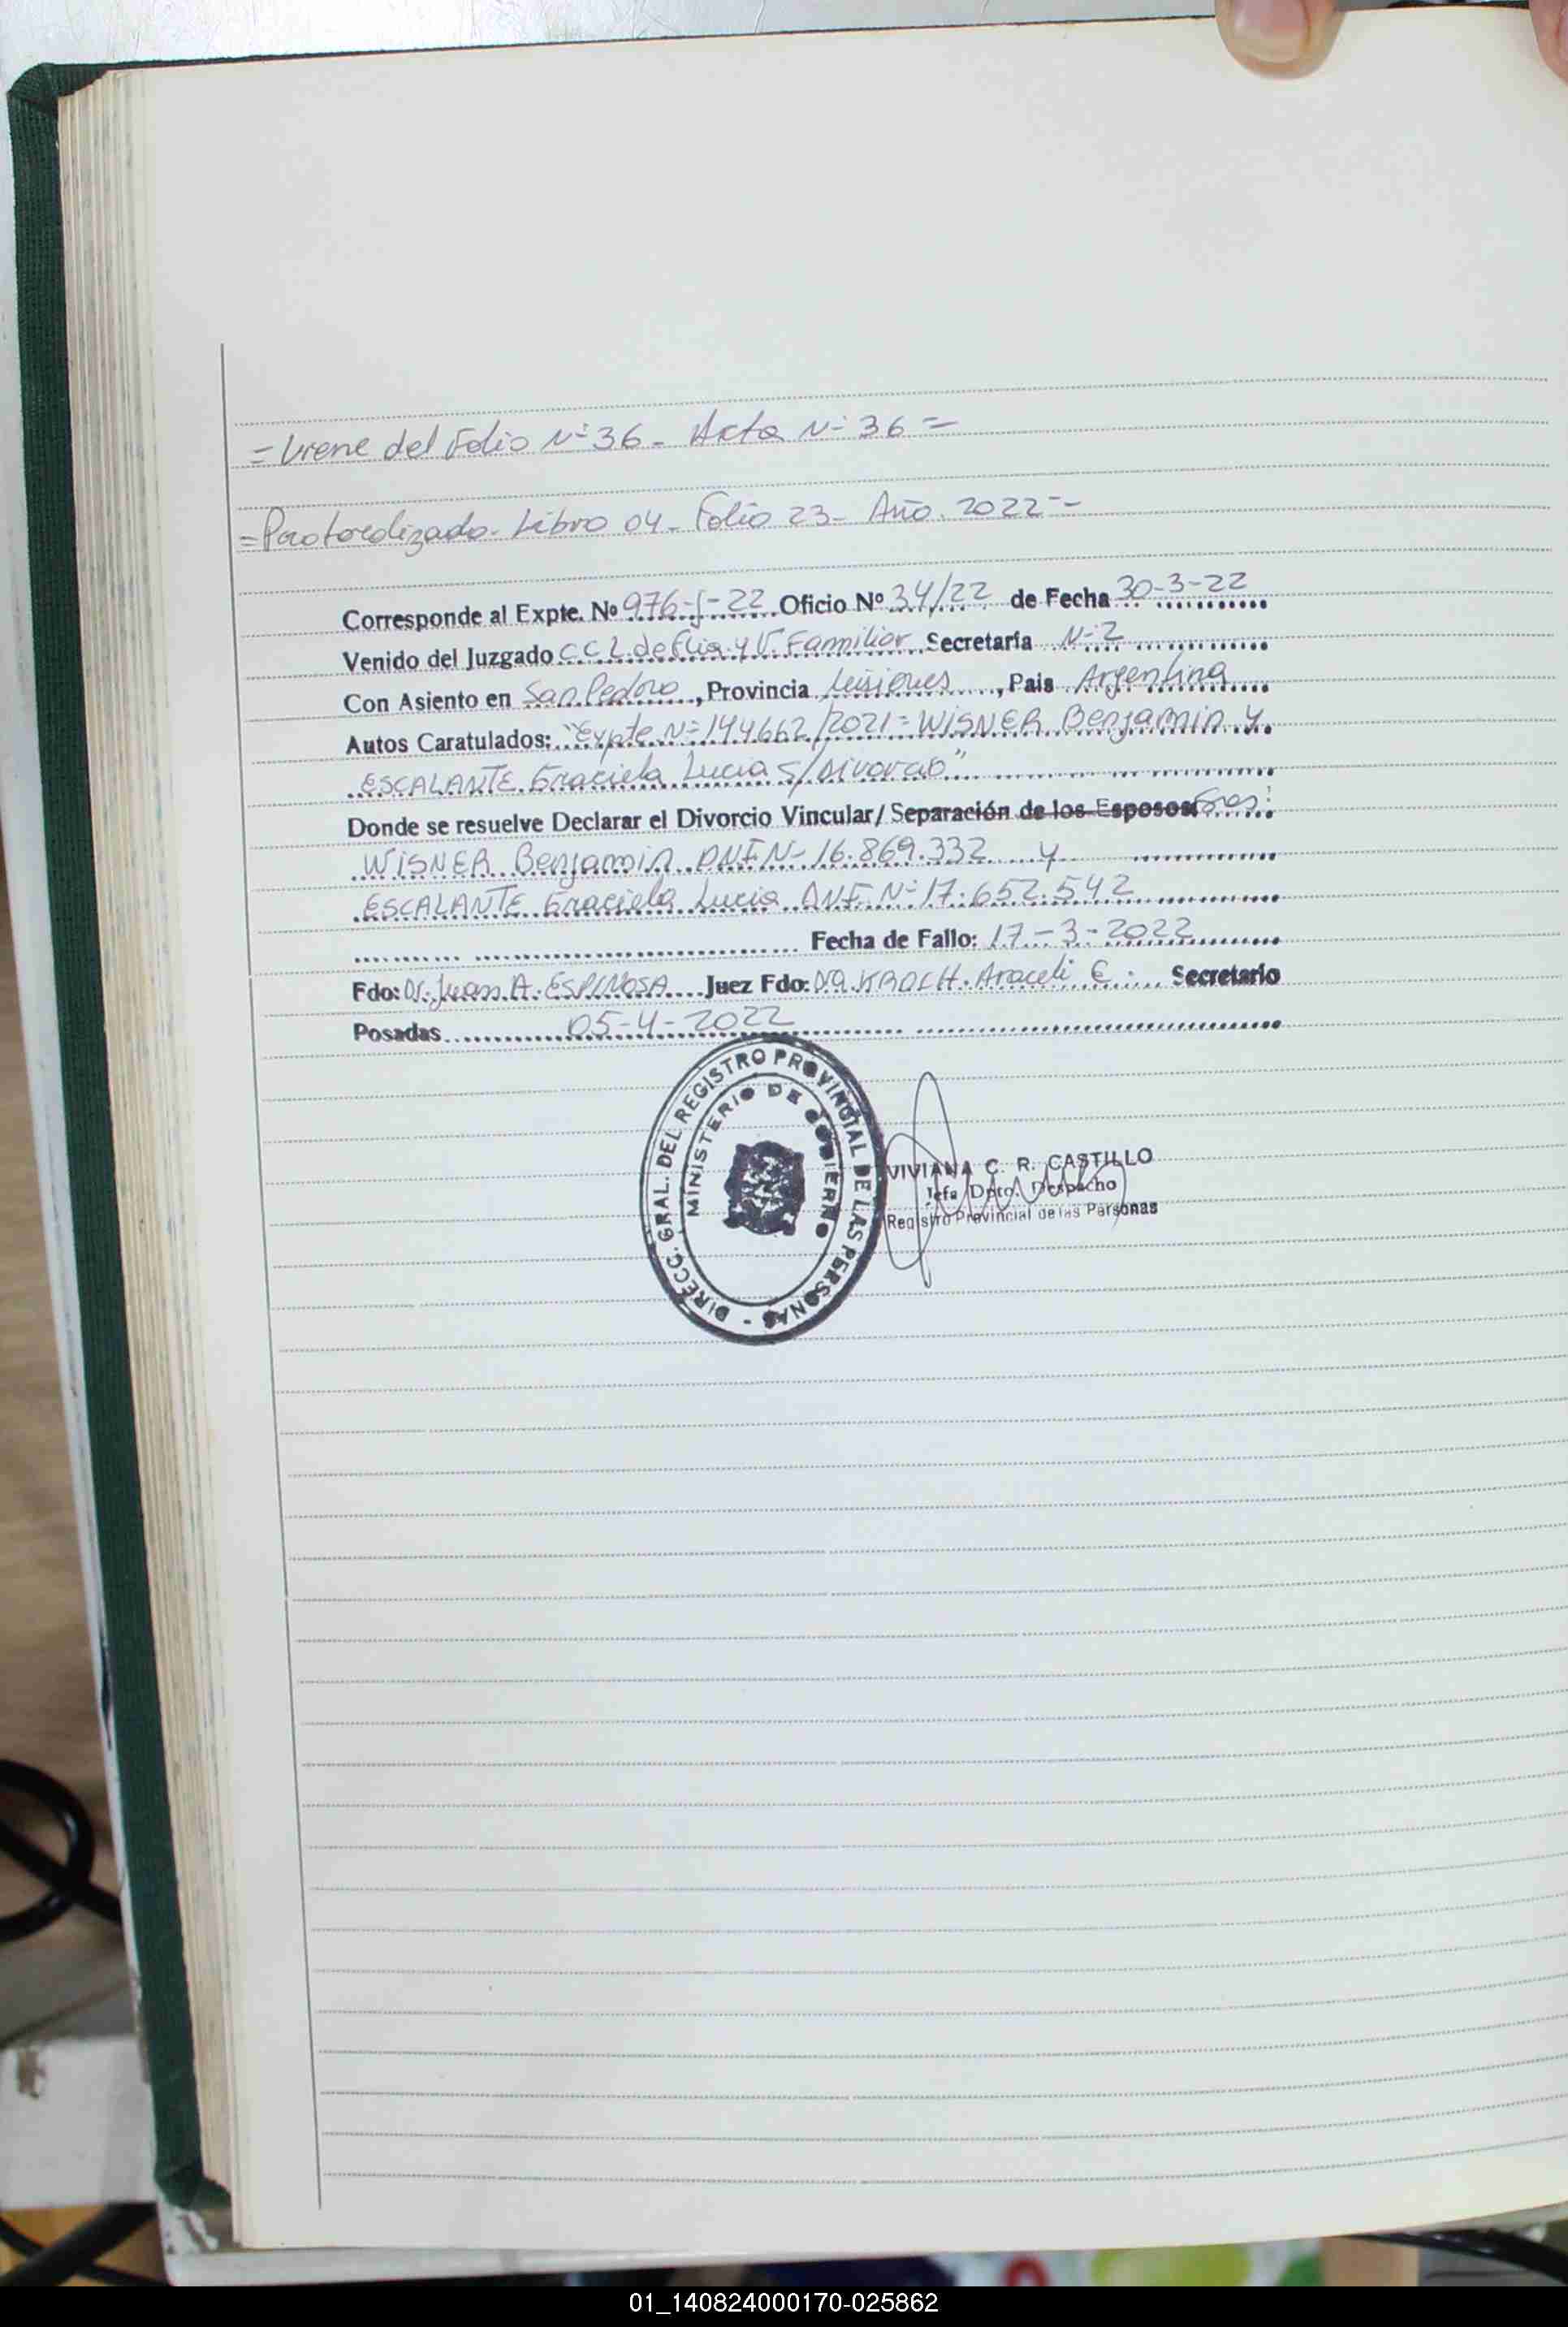 = Viene del Folio Nº 36 - Acta Nº 36 =
= Protocolizado - Libro 04 - Folio 23 - Año. 2022 =
Corresponde al Expte. Nº 976-J-22 Oficio Nº 34/22 de Fecha 30-3-22
Venido del Juzgado C C L de Flia y V. Familiar Secretaría Nº 2
Con Asiento en San Pedro, Provincia Misiones, Pais Argentina
Autos Caratulados: "Expte Nº 144662/2021 = WISNER Benjamin y
ESCALANTE Graciela Lucia S/Divorcio"
Donde se resuelve Declarar el Divorcio Vincular/ Separación de los Esposos Sres:
WISNER Benjamin DNI Nº 16.869.332 y
ESCALANTE Graciela Lucia DNI Nº 17.652.542
Fecha de Fallo: 17-3-2022
Fdo: Dr. Juan A. ESPINOSA Juez Fdo: Dra. Araceli E. Secretario
Posadas 05-4-2022
DIRECC. GRAL. DEL REGISTRO PROVINCIAL DE LAS PERSONAS -
MINISTERIO DE GOBIERNO
VIVIANA C. R. CASTILLO
Jefa Dpto. Despacho
Registro Provincial de las Personas
01_140824000170-025862